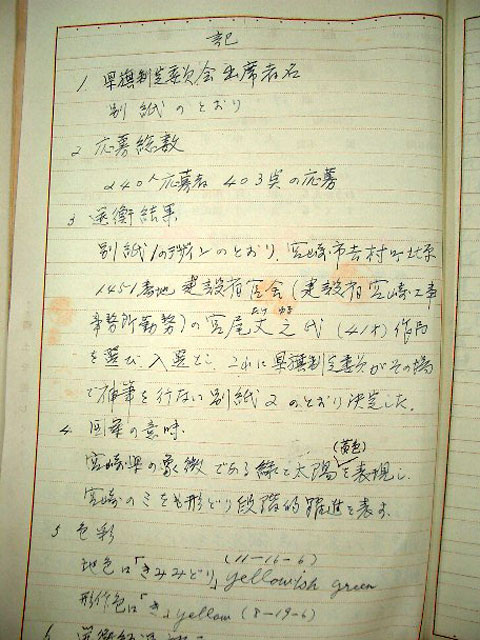 記
1 県旗制定委員会出席者名
別紙のとおり
2 応募総数
240人応募者 403点の応募
3 選衡結果
別紙1のデザインのとおり、宮崎市吉村町北原
1451番地 建設省宿舎(建設省宮崎工事
事務所勤務)の宮尾丈之氏(41才)作品
を選び、入選とし、これに県旗制定委員がその場
で補筆を行ない別紙2のとおり決定した。
4 図案の意味
(黄色)
宮崎県の象徴である緑と太陽を表現し、
宮崎のミをも形どり段階的躍進を表す。
5 色彩
(11-16-6)
地色は「きみみどり」yellowish green
形作色は「き」yellow (8-19-6)